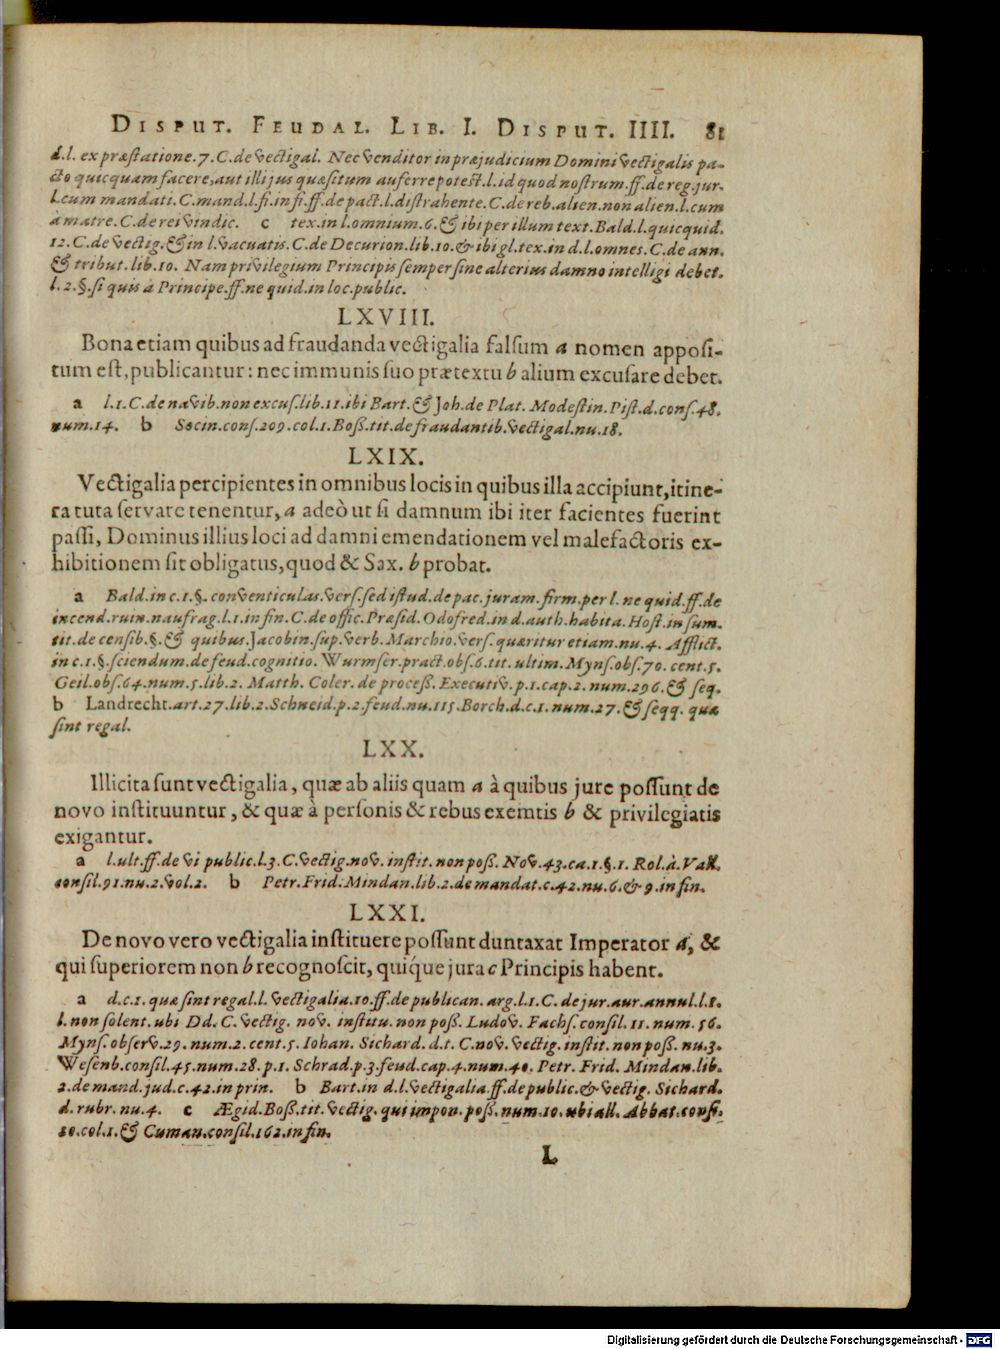 DISPUT. FEUDAL. LIB. I. DISPUT. IIII. 81
d.l. ex præstatione.7.C.de vectigal. Nec venditor in præjudicium Domini vectigalis pa-
cto quicquam facere, aut illi jus quæsitum auferre potest.l.id quod nostrum.ff.de reg.jur.
l.cum mandati.C.mand.l.fi.in fi.ff.de pact.l.distrahente.C.de reb.alien.non alien.l.cum
à matre.C.de rei vindic. c tex.in l.omnium.6.& ibi per illum text.Bald.l.quicquid.
12.C.de vectig.& in l.vacuatis.C.de Decurion.lib.10.& ibi gl.tex.in d.l.omnes.C.de ann.
& tribut.lib.10. Nam privilegium Principis semper sine alterius damno intelligi debet.
l.2.§.si quis à Principe.ff.ne quid.in loc.public.
LXVIII.
Bona etiam quibus ad fraudanda vectigalia falsum a nomen apposi-
tum est, publicantur: nec immunis suo prætextu b alium excusare debet.
a l.1.C.de navib.non excus.lib.11.ibi Bart.& Joh.de Plat. Modestin.Pist.d.cons.48.
num.14. b Socin.cons.209.col.1.Boss.tit.de fraudantib.vectigal.nu.18.
LXIX.
Vectigalia percipientes in omnibus locis in quibus illa accipiunt, itine-
ra tuta servare tenentur, a adeò ut si damnum ibi iter facientes fuerint
passi, Dominus illius loci ad damni emendationem vel malefactoris ex-
hibitionem sit obligatus, quod & Sax. b probat.
a Bald.in c.1.§.conventiculas.vers.sed istud.de pac.juram.firm.per l. ne quid.ff.de
incend.ruin.naufrag.l.1.in fin.C.de offic.Præsid.Odofred.in d.auth.habita.Host.in sum.
tit.de censib.§.& quibus.Jacobin.sup.verb.Marchio.vers.quæritur etiam.nu.4. Afflict.
in c.1.§.sciendum.de feud.cognitio. Wurmser.pract.obs.6.tit. ultim. Myns.obs.70. cent.5.
Geil.obs.64.num.5.lib.2. Matth. Coler. de process. Executiv.p.1.cap.2.num.296.& seq.
b Landrecht.art.27.lib.2.Schneid.p.2.feud.nu.115.Borch.d.c.1.num.27.& seqq. quæ
sint regal.
LXX.
Illicita sunt vectigalia, quæ ab aliis quam a à quibus jure possunt de
novo instituuntur, & quæ à personis & rebus exemtis b & privilegiatis
exigantur.
a l.ult.ff.de vi public.l.3.C.vectig.nov. instit. non poss. Nov.43.ca.1.§.1. Rol.à.Vall.
consil.91.nu.2.vol.2. b Petr.Frid.Mindan.lib.2.de mandat.c.42.nu.6.& 9.in fin.
LXXI.
De novo vero vectigalia instituere possunt duntaxat Imperator a, &
qui superiorem non b recognoscit, quique jura c Principis habent.
a d.c.1. quæ sint regal.l. vectigalia.10.ff.de publican. arg.l.1.C. de jur.aur.annul.l.1.
l. non solent. ubi Dd. C.vectig. nov. institu. non poss. Ludov. Fachs. consil. 11. num. 56.
Myns. observ.29. num.2. cent.5. Iohan. Sichard. d.t. C.nov. vectig. instit. non poss. nu.3.
Wesenb.consil.45.num.28.p.1. Schrad.p.3.feud.cap.4.num.40. Petr. Frid. Mindan.lib.
2.de mand. jud.c.42.in prin. b Bart.in d.l.vectigalia.ff.de public.& vectig. Sichard.
d. rubr. nu.4. c Ægid.Boss.tit.vectig.qui impon.poss.num.10.ubi all. Abbat.consi.
20.col.1.& Cuman.consil.162.in fin.
L
Digitalisierung gefördert durch die Deutsche Forschungsgemeinschaft - DFG